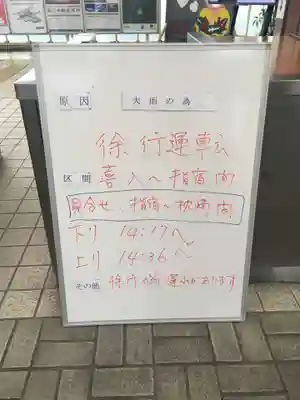 原因 大雨の為
徐行運転
区間 喜入〜指宿間
見合せ、指宿〜枕崎間
下り 14:17〜
上り 14:36〜
その他 徐行の為 遅れがあります